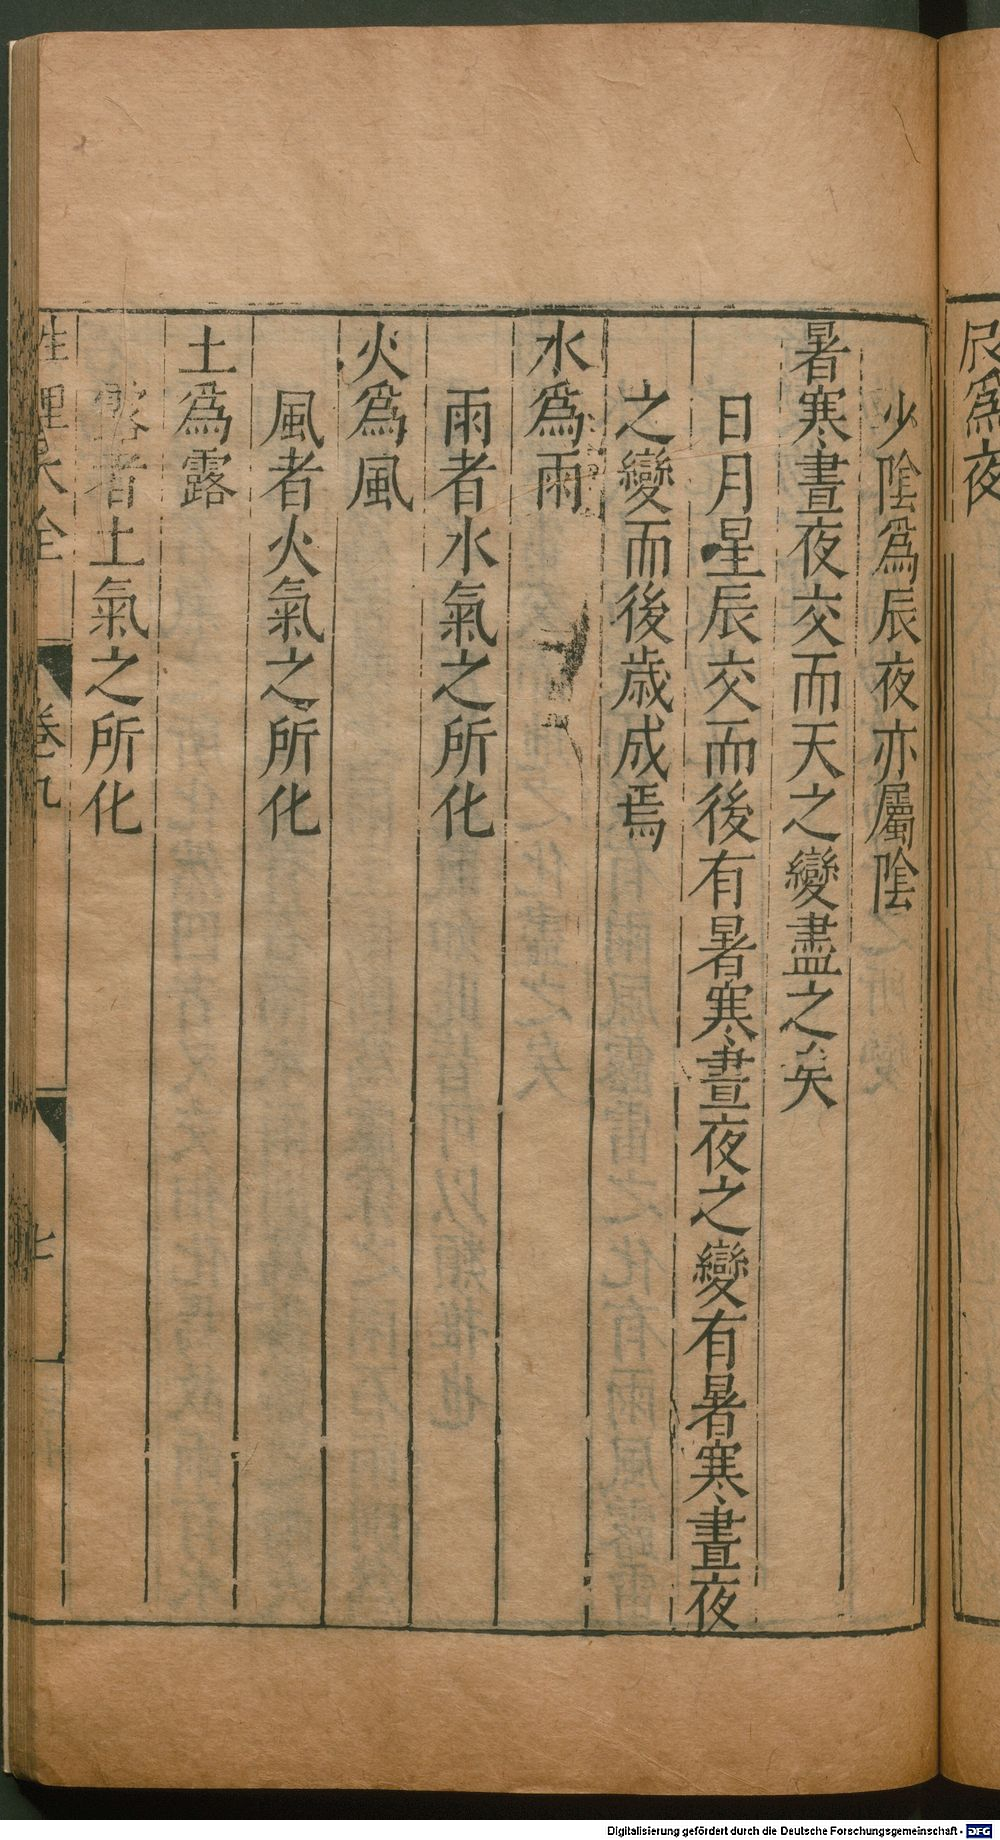 辰爲夜
少陰爲辰夜亦屬陰
暑寒晝夜交而天之變盡之矣
日月星辰交而後有暑寒晝夜之變有暑寒晝夜
之變而後歲成焉
水爲雨
雨者水氣之所化
火爲風
風者火氣之所化
土爲露
露者土氣之所化
性理大全
卷九
七
Digitalisierung gefördert durch die Deutsche Forschungsgemeinschaft - DFG